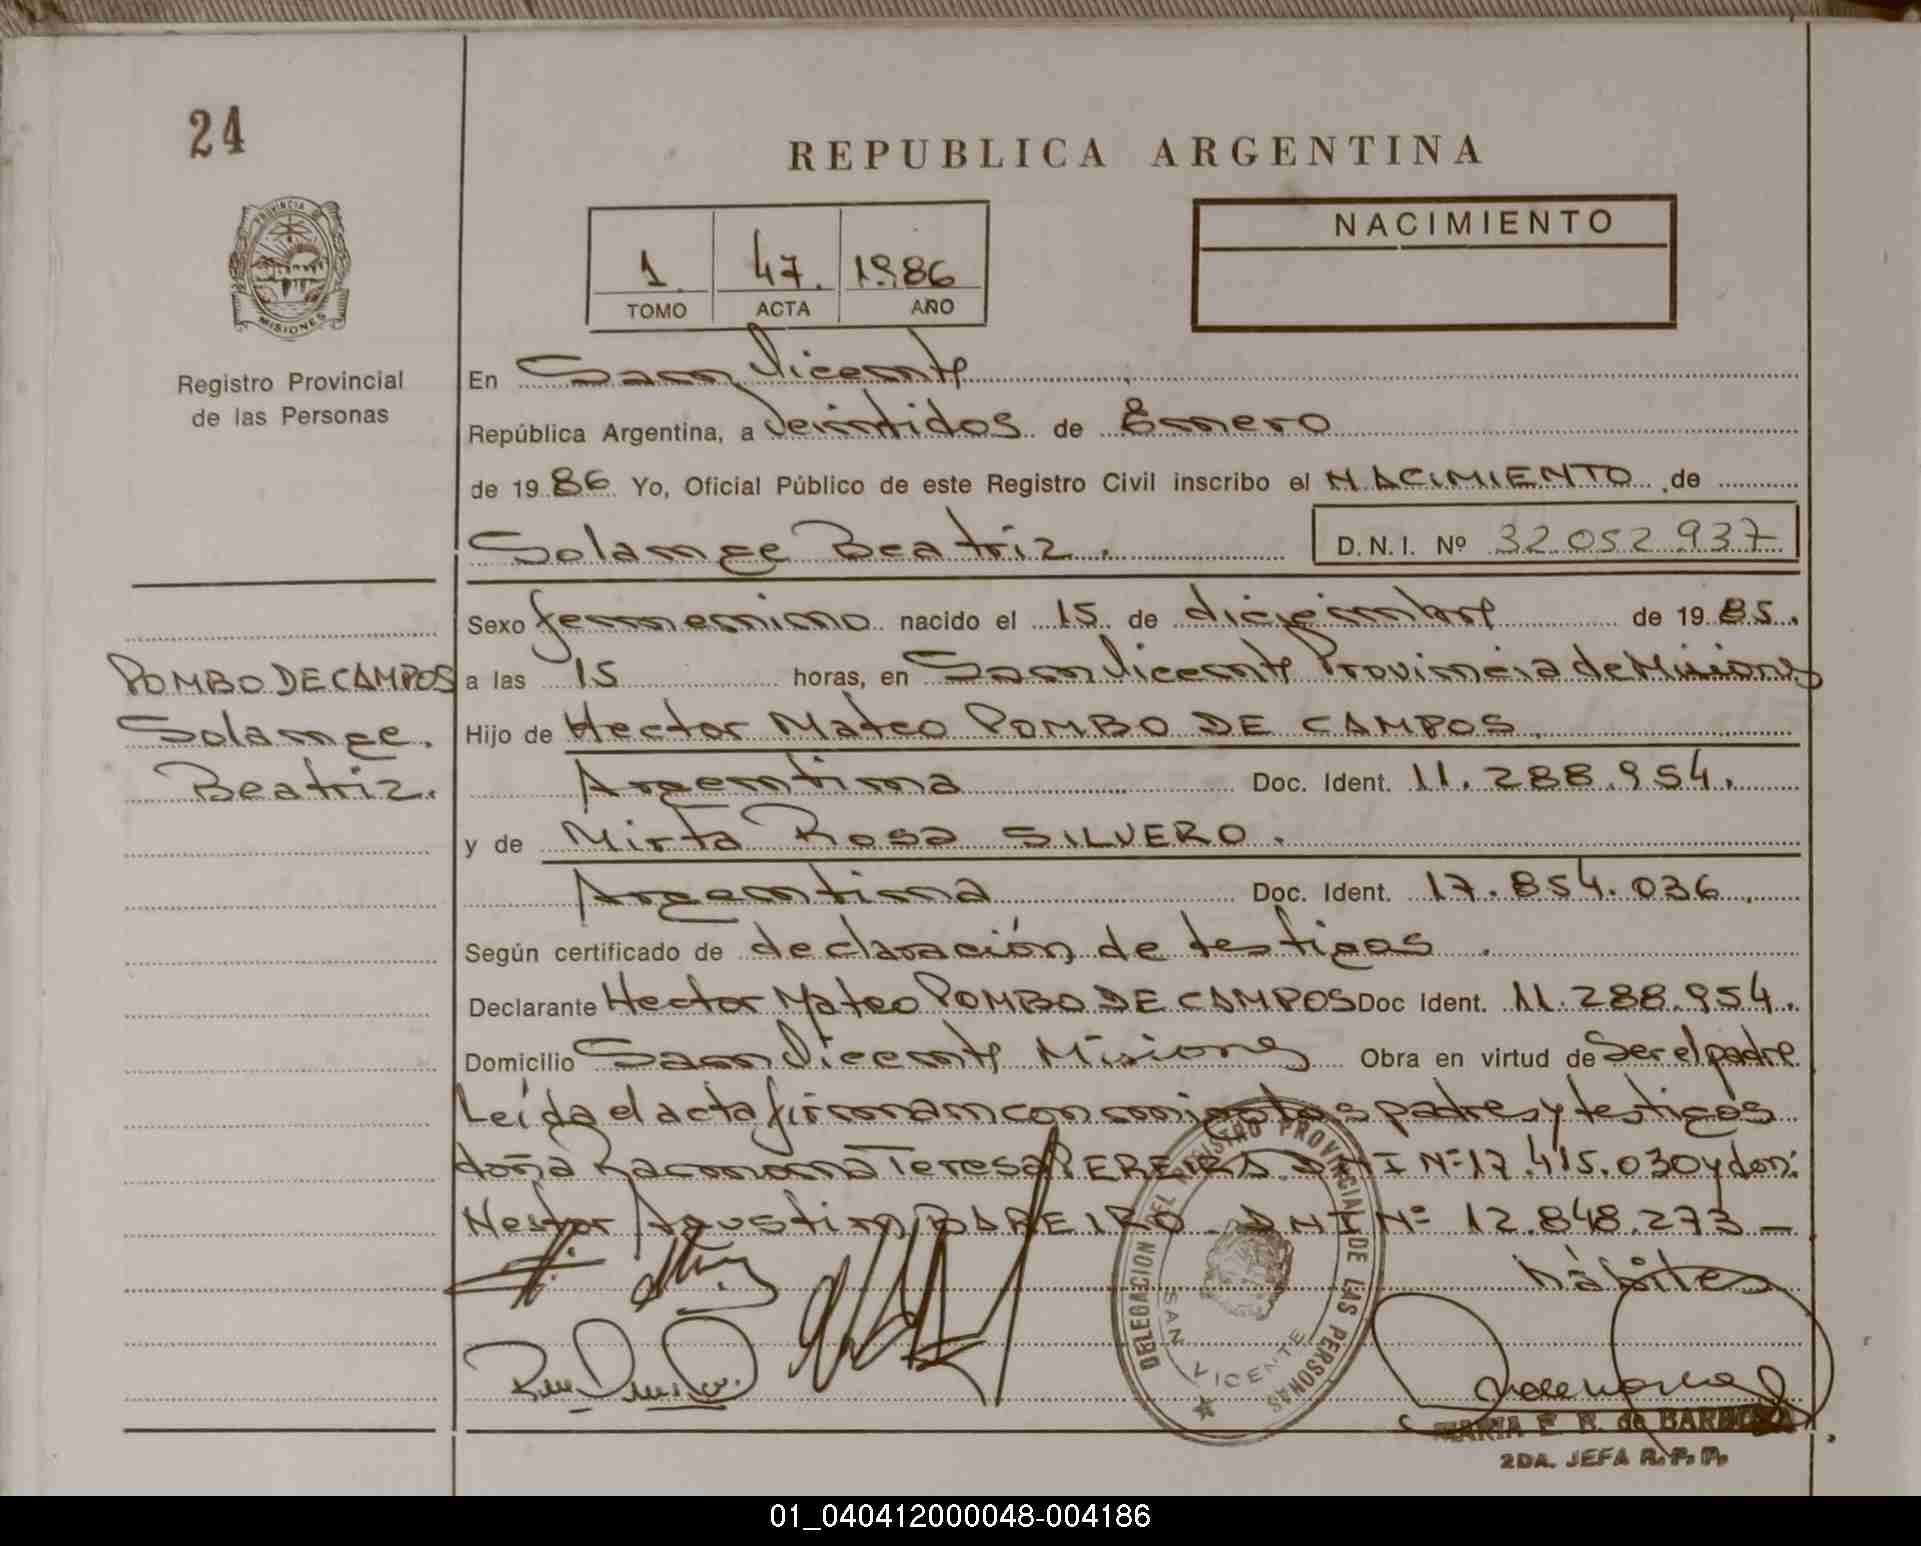 24
REPUBLICA ARGENTINA
PROVINCIA DE
MISIONES
Registro Provincial
de las Personas
1. 47. 1986
TOMO ACTA AÑO
NACIMIENTO
En San Vicente
República Argentina, a Veintidos de Enero
de 1986 Yo, Oficial Público de este Registro Civil inscribo el NACIMIENTO de
Solange Beatriz. D.N.I. Nº 32.052.937
Sexo femenino nacido el 15 de diciembre de 1985.
POMBO DE CAMPOS
Solange.
Beatriz.
a las 15 horas, en San Vicente Provincia de Misiones
Hijo de Hector Mateo POMBO DE CAMPOS
Argentina Doc. Ident. 11.288.954.
y de Mirta Rosa SILVERO.
Argentina Doc. Ident. 17.854.036
Según certificado de declaración de testigos
Declarante Hector Mateo POMBO DE CAMPOS Doc Ident. 11.288.954.
Domicilio San Vicente Misiones Obra en virtud de Ser el padre
Leída el acta firman conmigo los padres y testigos
doña Ramona Teresa PEREIRA. DNI Nº 17.415.030 y don:
Nestor Agustin PEREIRO. DNI Nº 12.848.273 —
DELEGACION DEL REGISTRO PROVINCIAL DE LAS PERSONAS
SAN VICENTE
MARIA E. B. de BARBOZA
2DA. JEFA R.P.P.
01_040412000048-004186